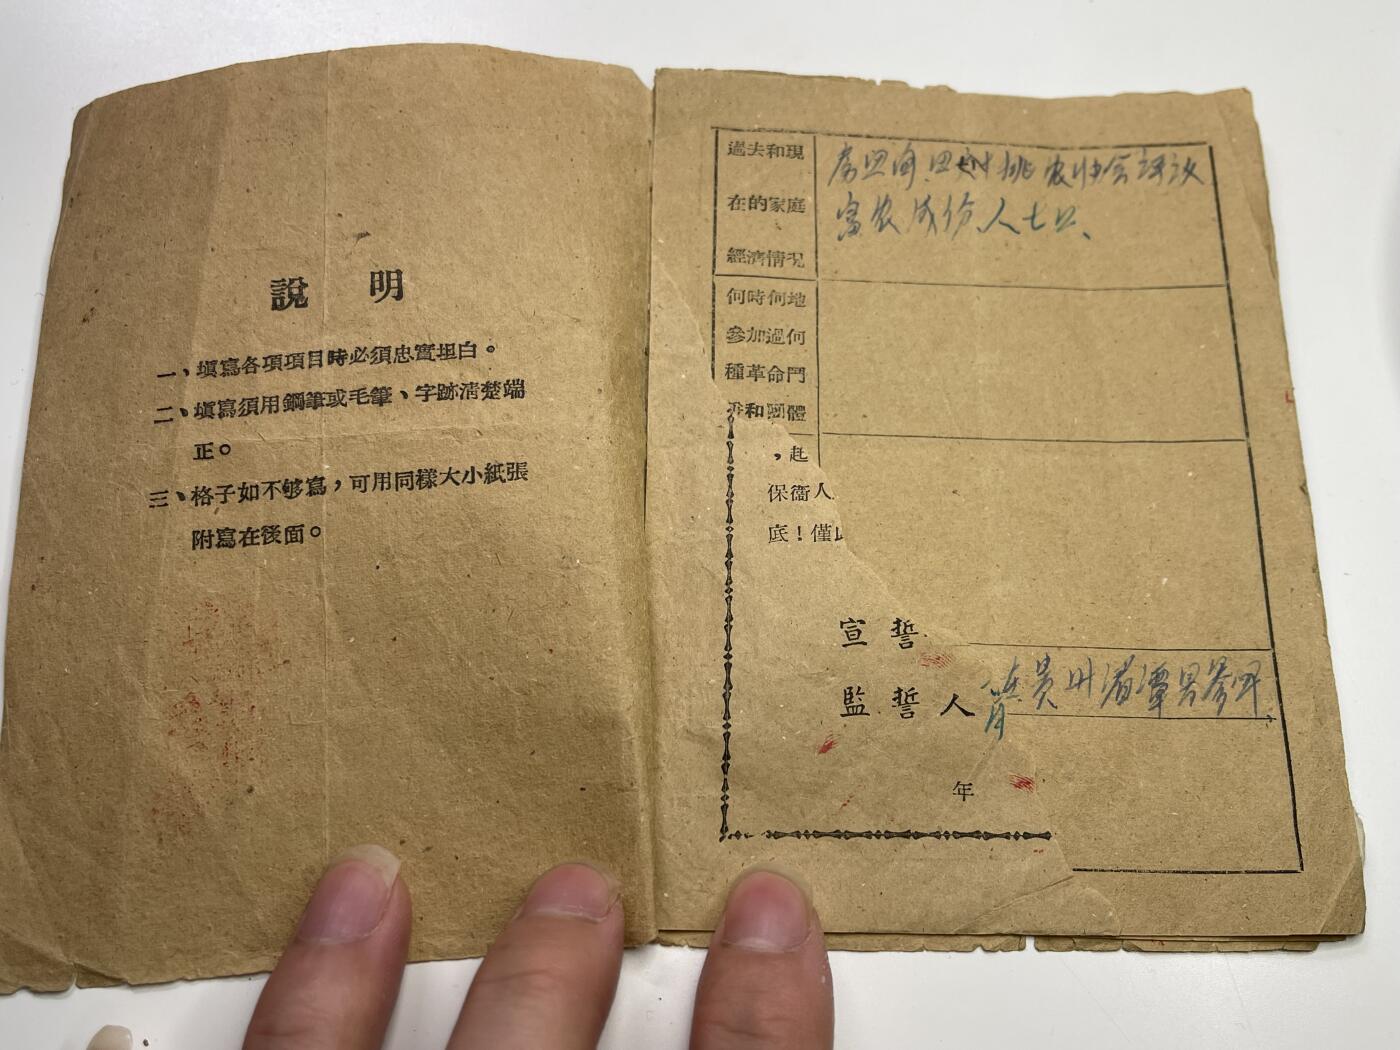 說明
一、填寫各項項目時必須忠實坦白。
二、填寫須用鋼筆或毛筆、字跡清楚端
正。
三、格子如不够寫，可用同樣大小紙張
附寫在後面。
過去和現
在的家庭
經濟情況
挑 农协会评议
富农成份人七口、
何時何地
參加過何
種革命鬥
和團體
，起
保衞人
底！僅
宣誓
監誓人
在贵州湄潭
年